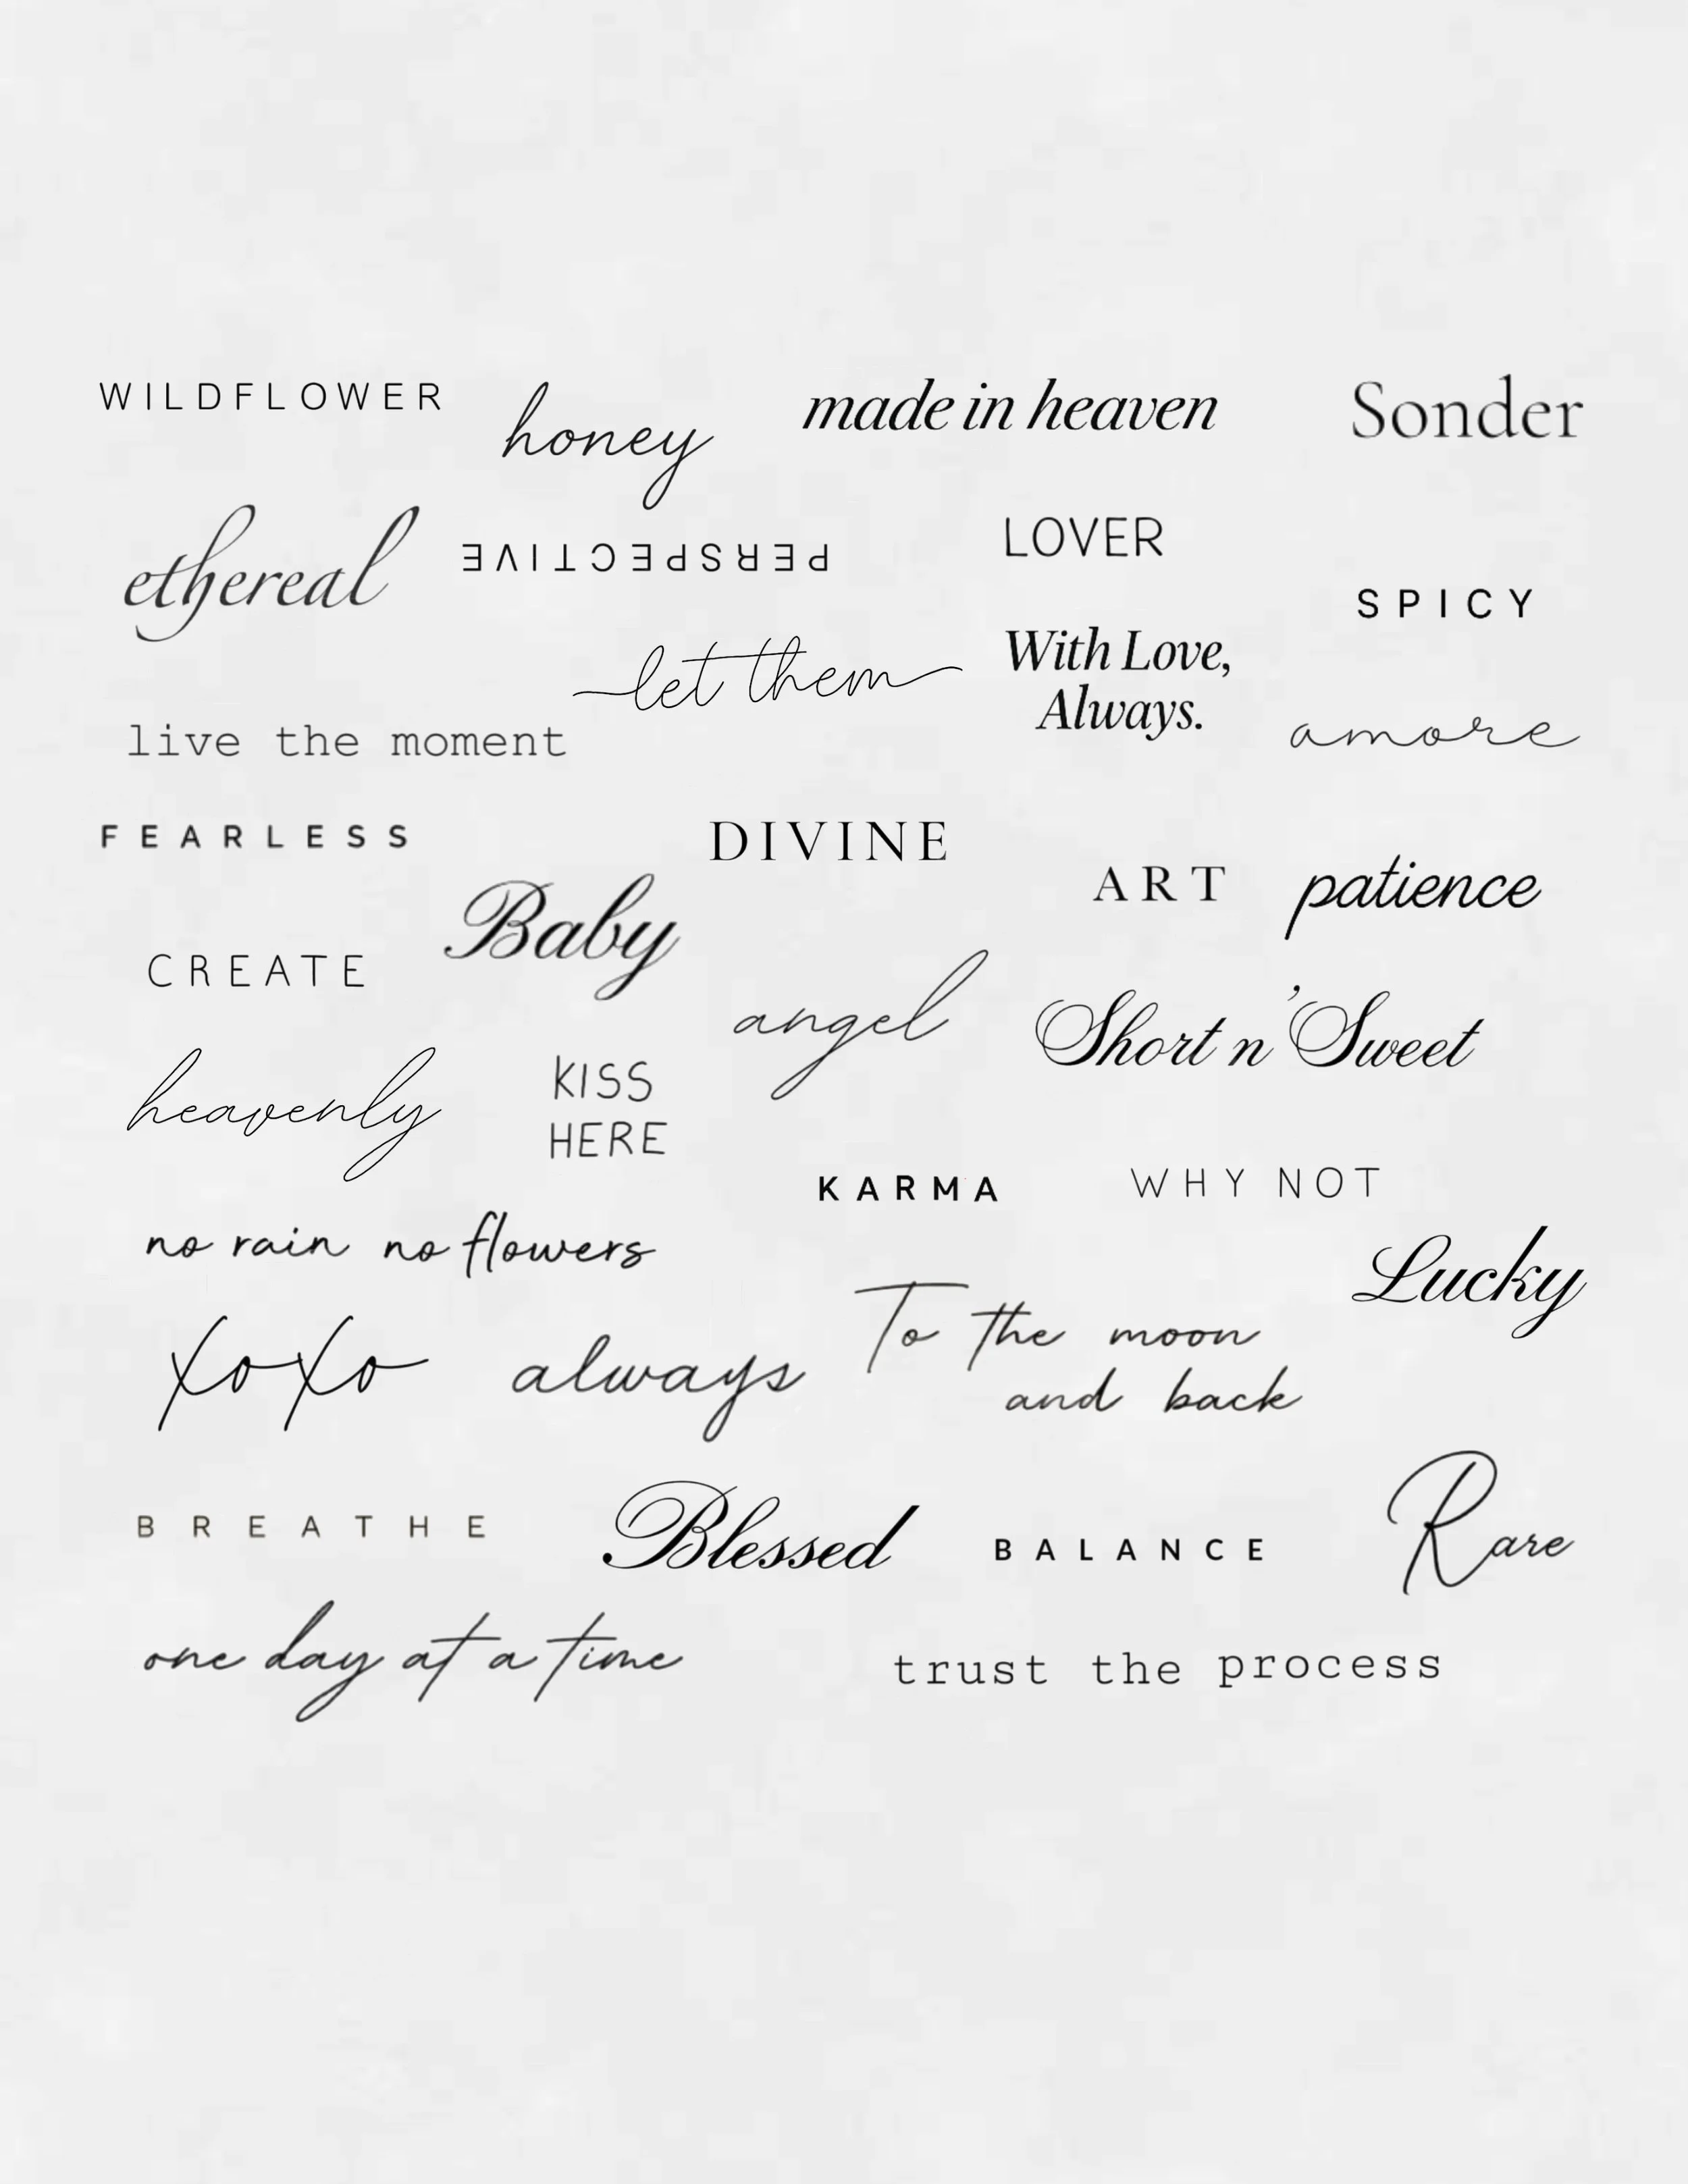 WILDFLOWER
honey
made in heaven
Sonder
ethereal
PERSPECTIVE
LOVER
SPICY
let them
With Love,
Always.
amore
live the moment
FEARLESS
DIVINE
ART
patience
Baby
CREATE
angel
Short n' Sweet
heavenly
KISS
HERE
KARMA
WHY NOT
no rain no flowers
Lucky
xoxo
always
To the moon
and back
BREATHE
Blessed
BALANCE
Rare
one day at a time
trust the process